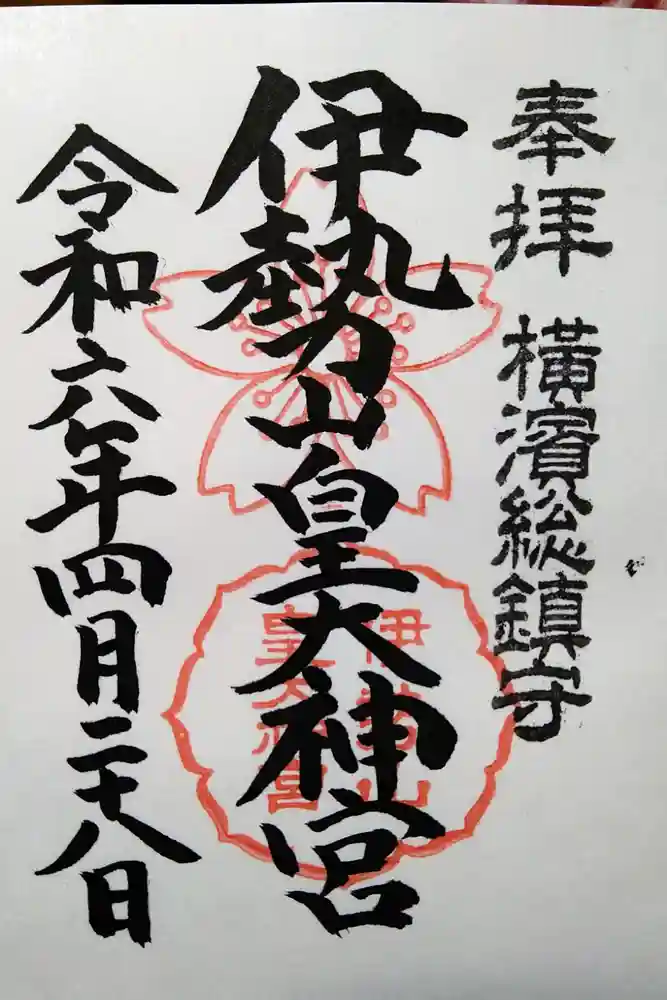 奉拝
横濱総鎮守
伊勢山皇大神宮
伊勢山
皇大神宮
令和六年四月二十八日